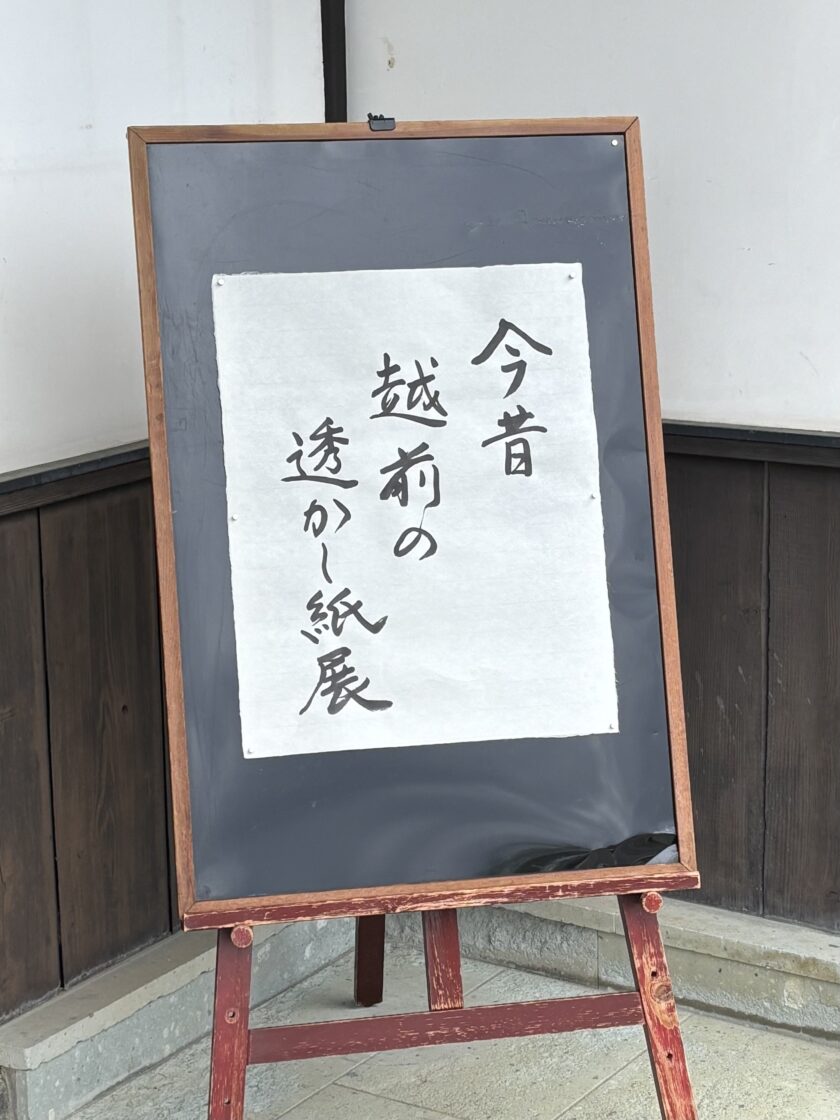 今昔
越前の
透かし紙展